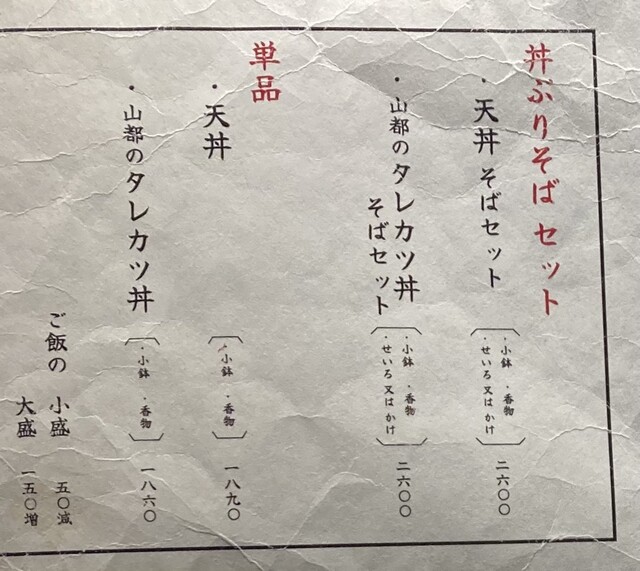 丼ぶりそばセット
・天丼 そばセット
・小鉢 ・香物
・せいろ又はかけ
二六〇〇
・山都のタレカツ丼
そばセット
・小鉢 ・香物
・せいろ又はかけ
二六〇〇
単品
・天丼
・小鉢 ・香物
一八九〇
・山都のタレカツ丼
・小鉢 ・香物
一八六〇
ご飯の 小盛 五〇減
大盛 一五〇増